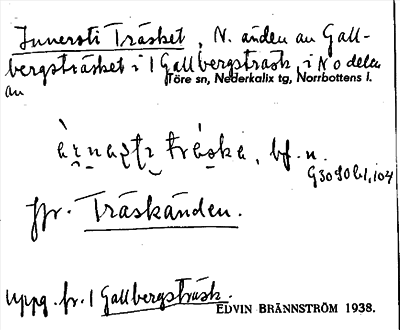 Innersti Träsket, N. änden av Gall-
bergsträsket i 1 Gallbergsträsk, i N o delen
Töre sn, Nederkalix tg, Norrbottens l.
av
träska, bf. n.
Jfr. Träskänden.
Uppg. fr. 1 Gallbergsträsk.
EDVIN BRÄNNSTRÖM 1938.